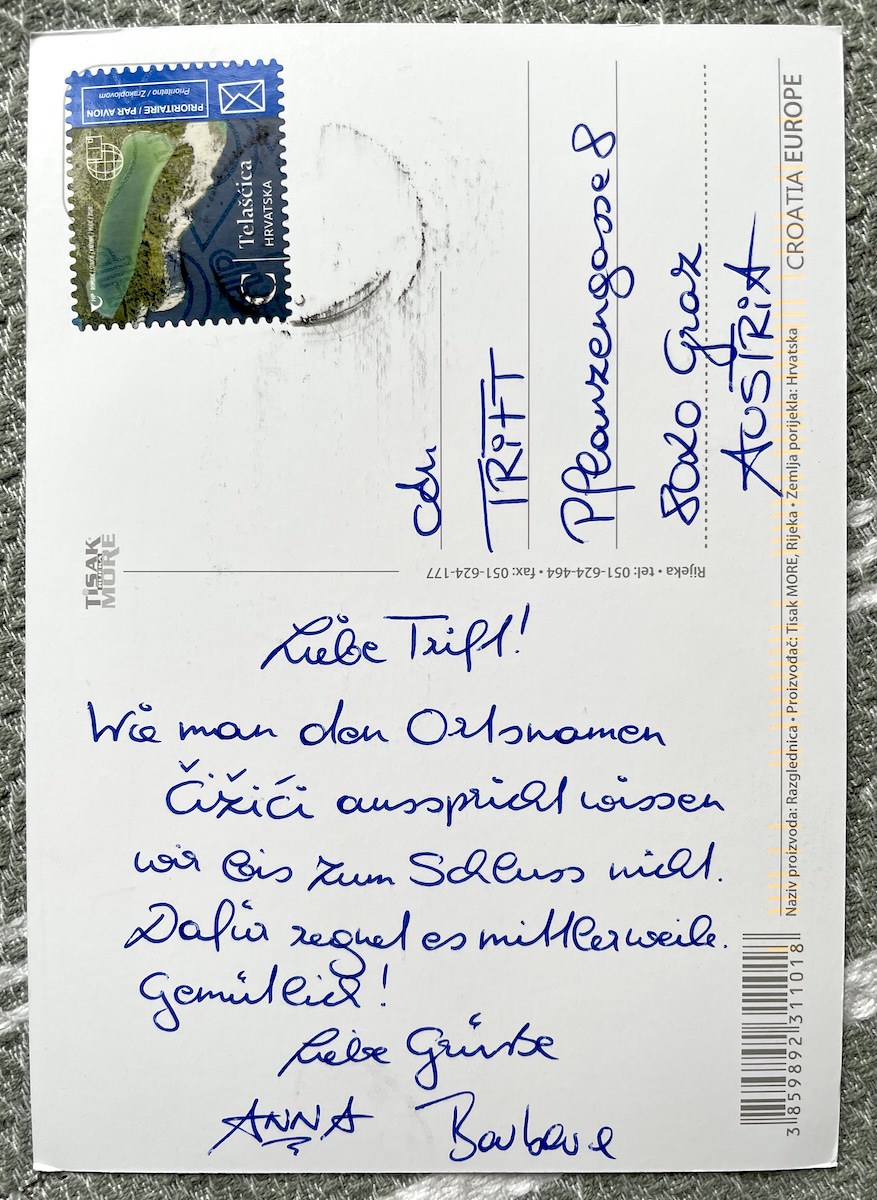 PRIORITAIRE / PAR AVION
Prioritetno / Zrakoplovom
Telašćica
HRVATSKA
C
TISAK
MORE
Rijeka • tel: 051-624-464 • fax: 051-624-177
TRiFT
Pflanzengasse 8
8020 Graz
AUSTRiA
CROATIA EUROPE
Naziv proizvoda: Razglednica • Proizvođač: Tisak MORE, Rijeka • Zemlja porijekla: Hrvatska
3 859892 311018
Liebe Trift!
Wie man den Ortsnamen
Čižići ausspricht wissen
wir bis zum Schluss nicht.
Dafür regnet es mittlerweile.
Gemütlich!
Liebe Grüße
ANNA Barbara